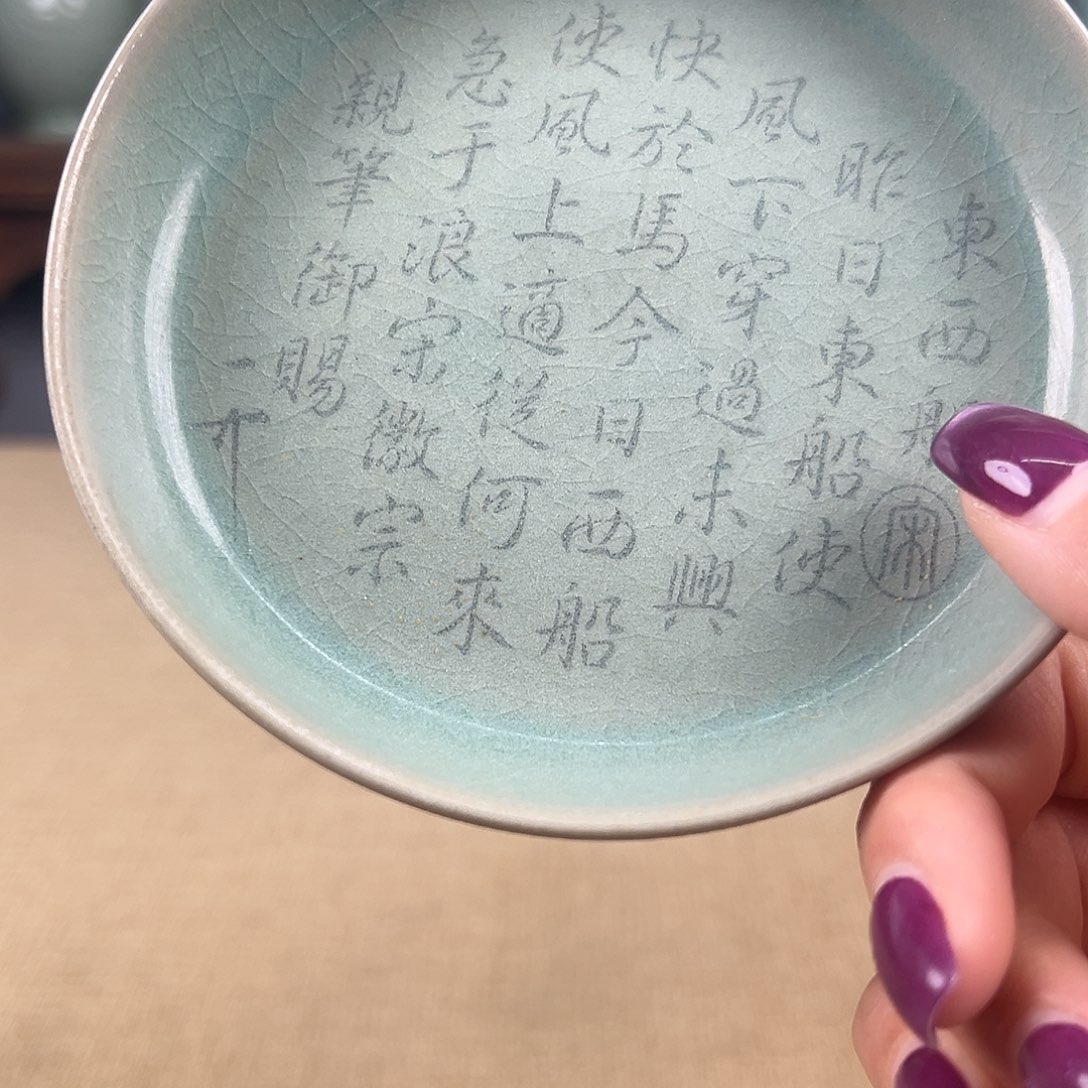 東西船
昨日東船使
風下穿過未興
快於馬今日西船
使風上適從何來
急于浪宋徽宗
親筆御賜